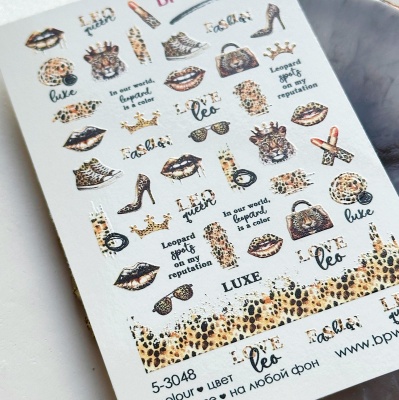 LEO
queen
FASHION
luxe
In our world,
leopard
is a color
LOVE
leo
Leopard
spots
on my
reputation
FASHION
LEO
queen
In our world,
leopard
is a color
luxe
Leopard
spots
on my
reputation
LOVE
leo
LUXE
5-3048
LOVE
leo
FASHION
LEO
queen
colour ♥ цвет
www.bpw
на любой фон